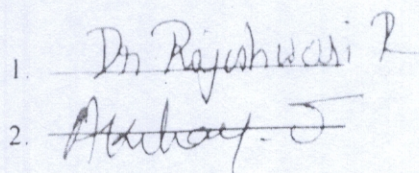 1. Dr Rajeshwari R
2. Akshay. J